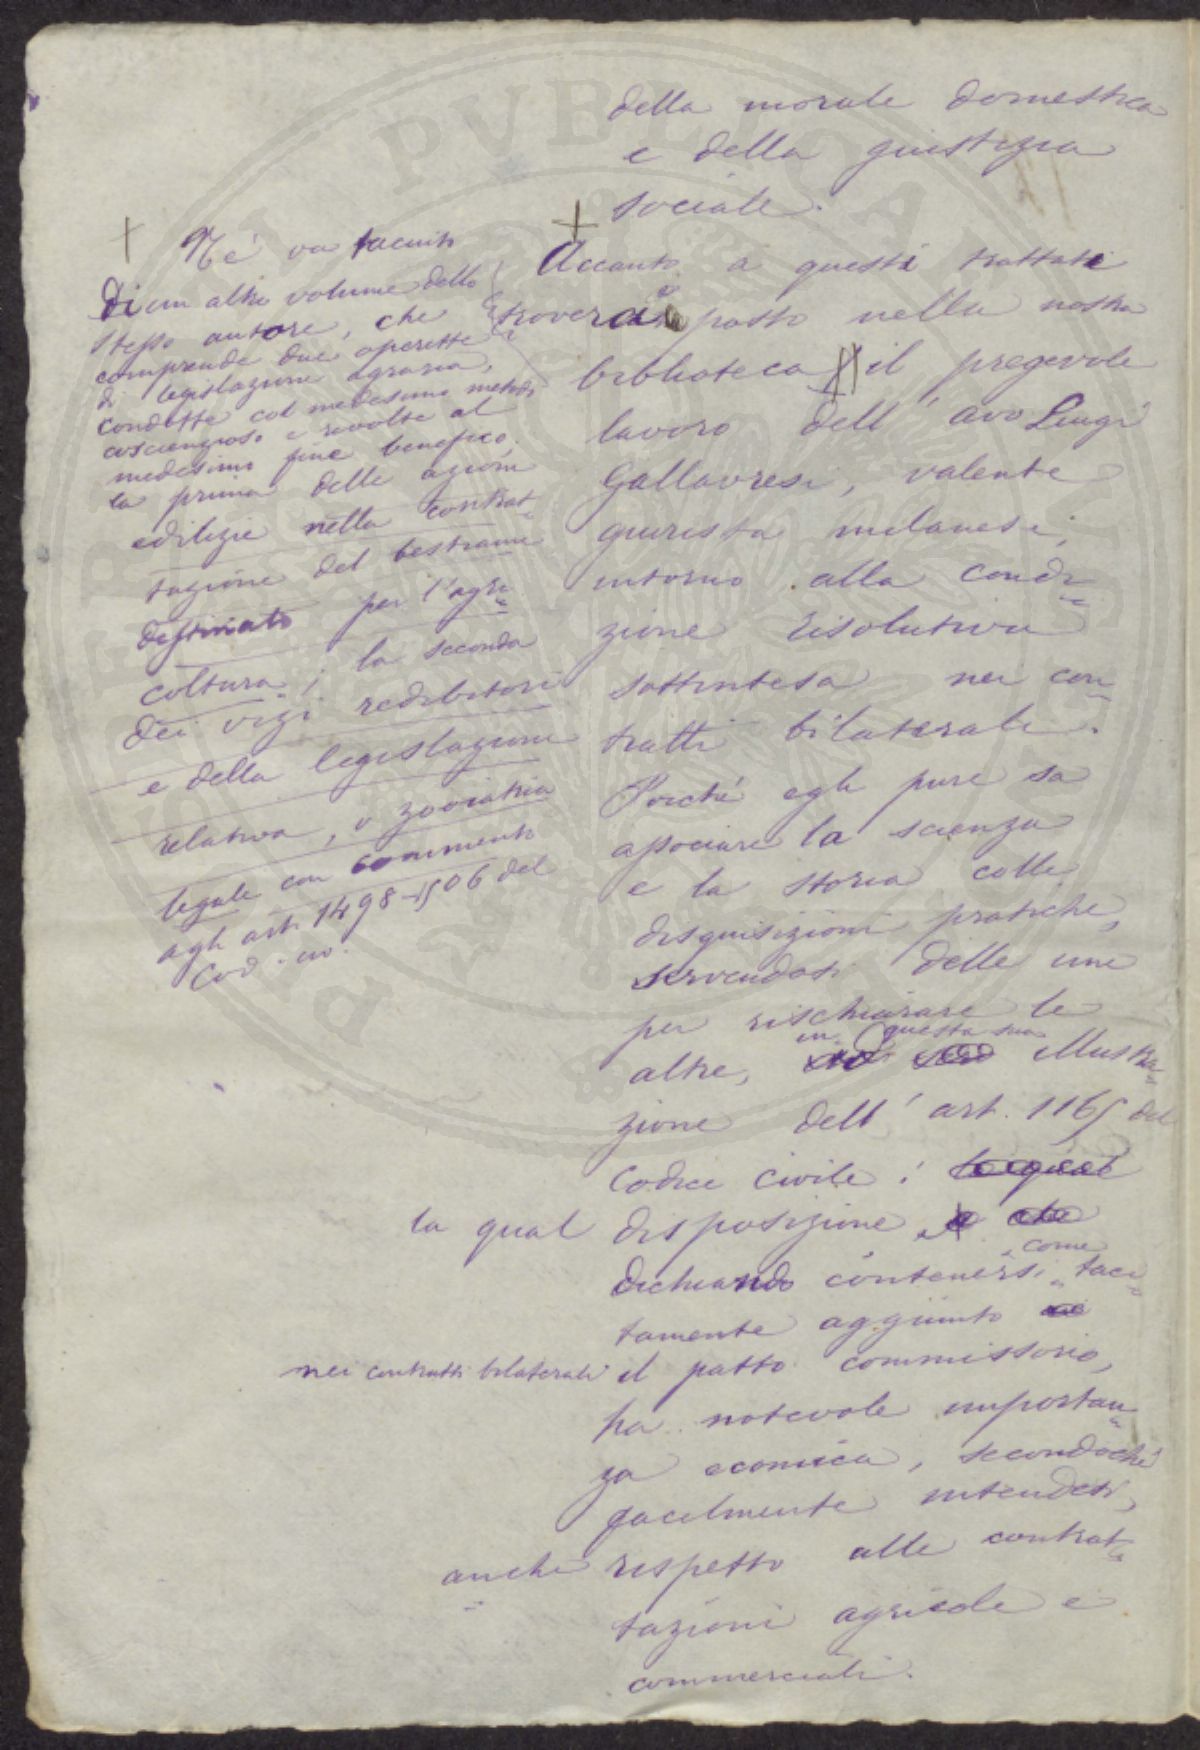 della morale domestica
e della giustizia
sociale.
+
+ Né va taciuto
di un altro volume dello
stesso autore, che
comprende due operette
di legislazione agraria,
condotte col medesimo metodo
coscienzioso e rivolte al
medesimo fine benefico,
la prima delle azioni
edilizie nella contrat-
tazione del bestiame
destinato per l'agri-
coltura; la seconda
dei vizi redibitori
e della legislazione
relativa, o zooiatria
legale con commento
agli arti. 1498-1506 del
Cod. civ.
Accanto a questi trattati
troverà posto nella nostra
biblioteca il pregevole
lavoro dell'avo Luigi
Gallavresi, valente
giurista milanese,
intorno alla condi-
zione risolutiva
sottintesa nei con-
tratti bilaterali.
Poiché egli pure sa
associare la scienza
e la storia colle
disquisizioni pratiche,
servendosi delle une
per rischiarare le
altre, in questa sua illustra-
zione dell'art. 1165 del
Codice Civile;
la qual disposizione,
dichiarando contenersi, come taci-
tamente aggiunto
nei contratti bilaterali il patto commissorio,
ha notevole importan-
za economica, secondoché
facilmente intendesi,
anche rispetto alle contrat-
tazioni agricole e
commerciali.